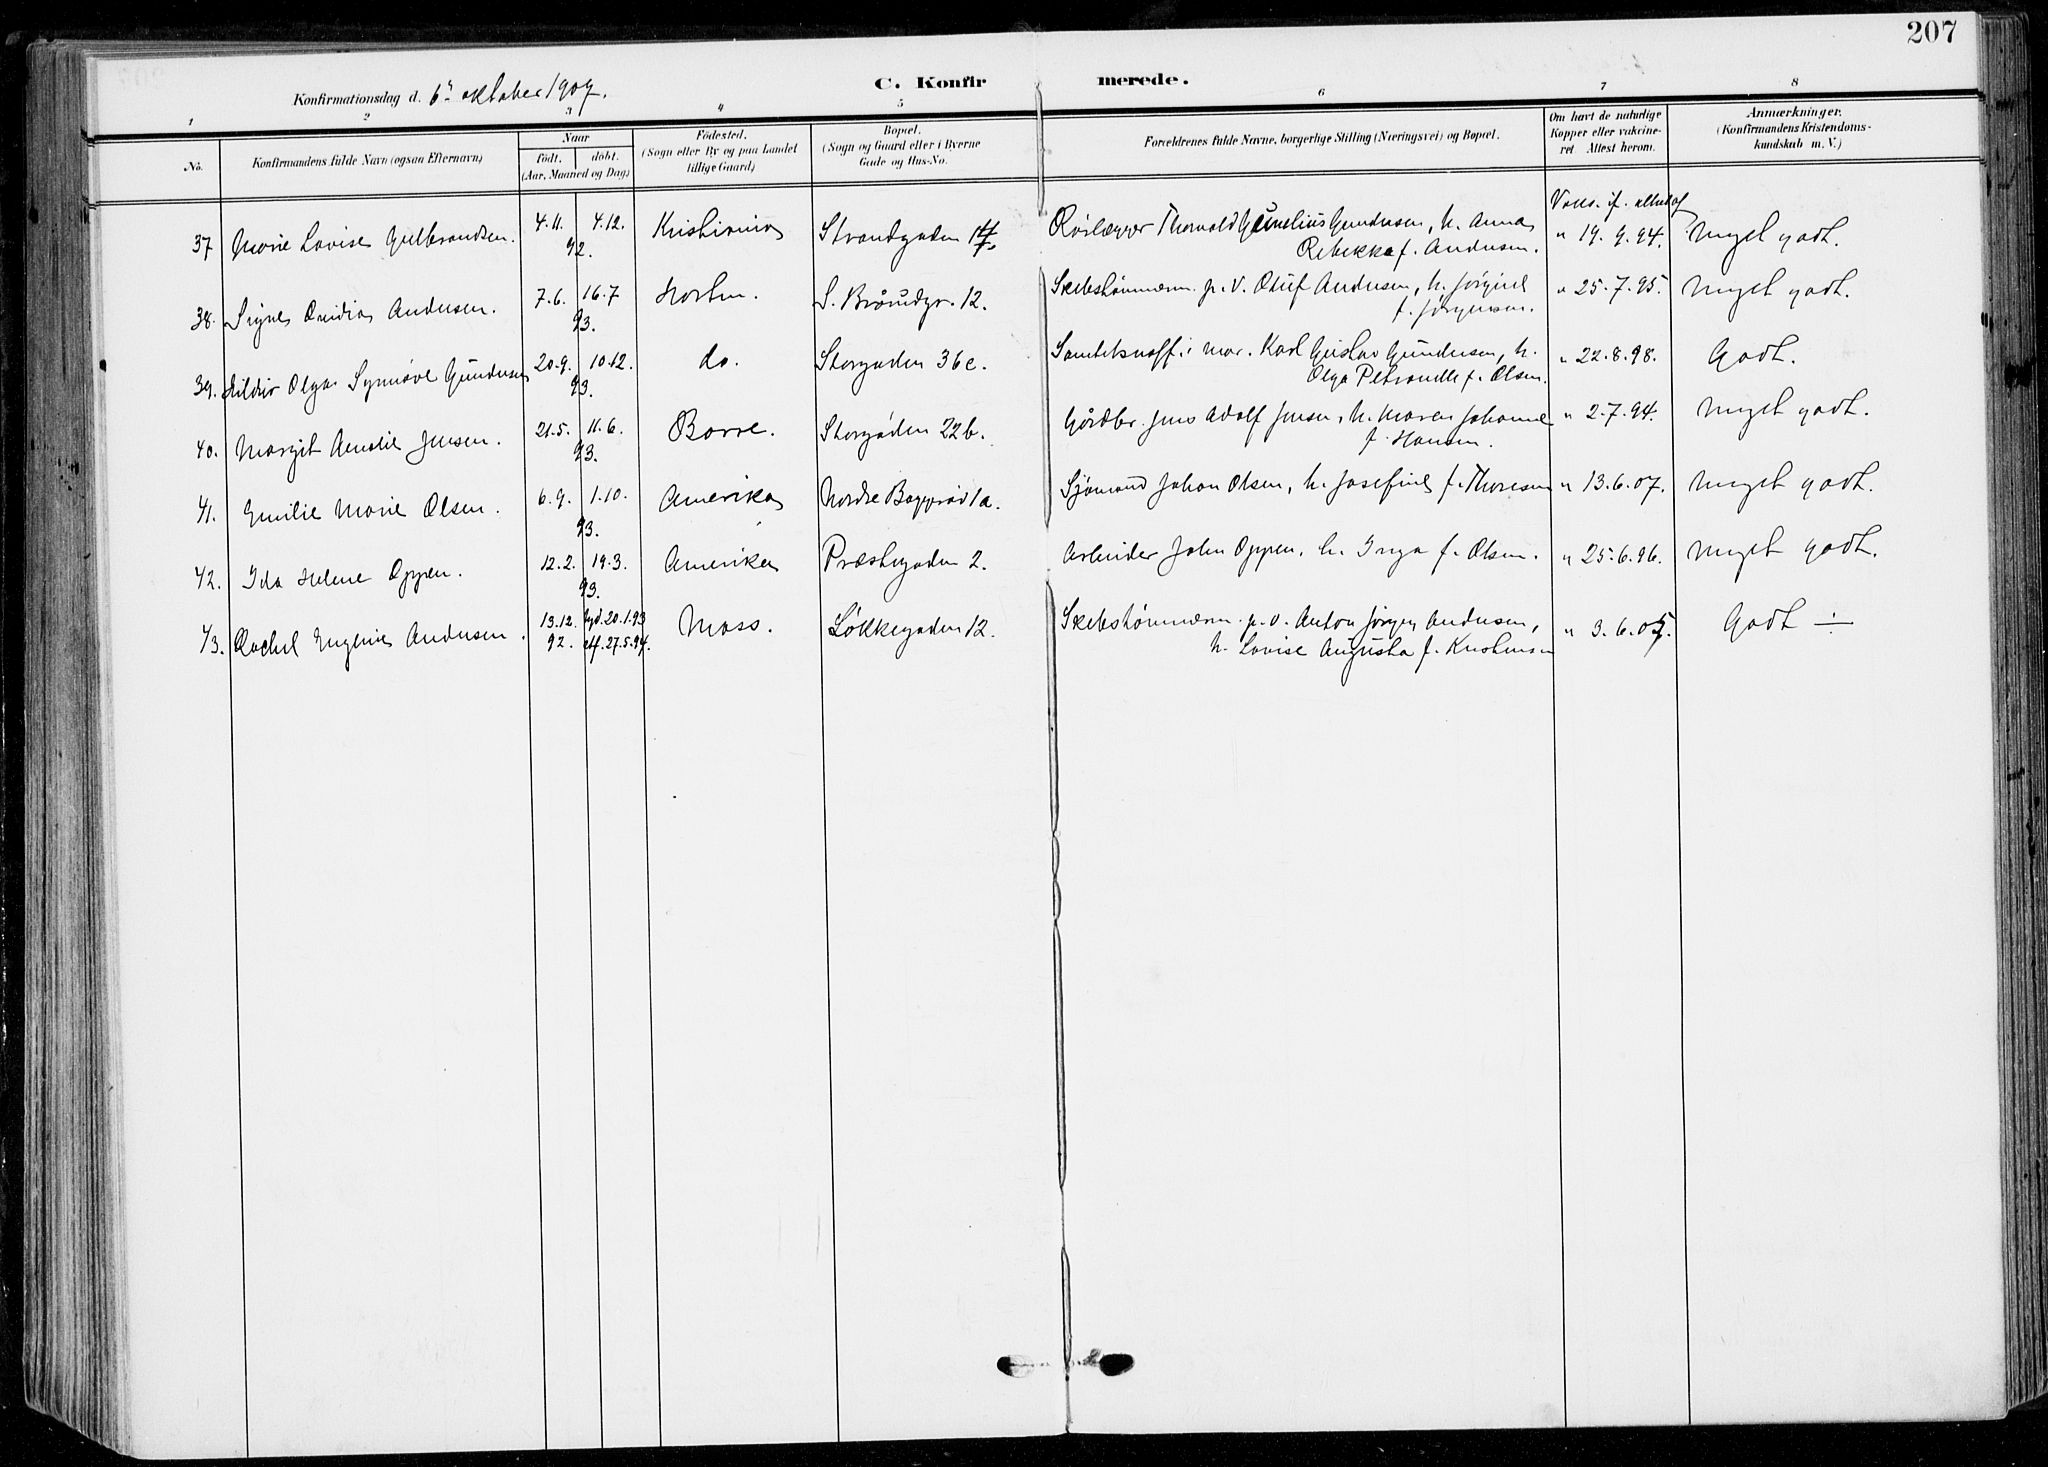 207
Konfirmationsdag d. 6te oktober 1907.
C. Konfir merede.
1 2 3 4 5 6 7 8
No.
Konfirmandens fulde Navn (ogsaa Efternavn)
Naar
født. døbt.
(Aar, Maaned og Dag)
Fødested.
(Sogn eller By og paa Landet
tillige Gaard)
Bopæl.
(Sogn og Gaard eller i Byerne
Gade og Hus-No.
Forældrenes fulde Navne, borgerlige Stilling (Næringsvei) og Bopæl.
Om havt de naturlige
Kopper eller vakcine-
ret. Attest herom.
Anmærkninger.
(Konfirmandens Kristendoms-
kundskab m. V.)
Vacc. if. attest af
37 Marie Lovise Gulbrandsen. 4.11. 4.12. Kristiania Strandgaden Rørlægger Thorvald Gundersen, h. Anna " 19.9.94. Meget godt.
92. Rebekka f. Andersen.
38. Signe Ovidia Andersen. 7.6. 16.7 Horten. S. Braarudgt. 12. Skibstømmerm. p. V. Oluf Andersen, h. Jørgine " 25.7.95. Meget godt.
93. f. Jørgensen.
39. Hildur Olga Synnøve Gundersen 20.9. 10.12. do. Storgaden 36c. Karl Gustav Gundersen, h. " 22.8.98. Godt.
93. Olga Petronelle f. Olsen.
40. Margit Amalie Jensen. 21.5. 11.6. Borre. Storgaden 22b. Gårdbr. Jens Adolf Jensen, h. Maren Johanne " 2.7.94. Meget godt.
93. f. Hansen.
41. Emilie Marie Olsen. 6.9. 1.10. Amerika Nordre Baggerød 1a. Sjømand Johan Olsen, h. Josefine f. Thoresen " 13.6.07. Meget godt.
93.
42. Ida Helene Oppen. 12.2. 19.3. Amerika Præstegaden 2. Arbeider John Oppen, h. Inga f. Olsen. " 25.6.96. Meget godt.
93.
43. Rachel Eugenie Andersen. 13.12. hjd. 20.1.93 Moss. Løkkegaden 12. Skibstømmerm. p. v. Anton Jørgen Andersen, " 3.6.07. Godt ÷
92. stf. 27.5.94. h. Lovise Augusta f. Kristensen